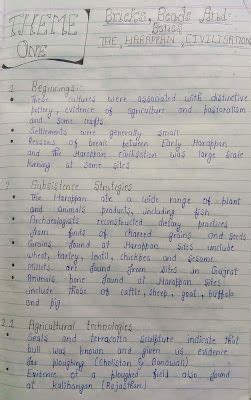 THEME ONE
Bricks, Beads And
Bones
THE HARAPPAN CIVILISATION
1 Beginnings:-
These cultures were associated with distinctive
pottery, evidence of agriculture and pastoralism
and some crafts
Settlements were generally small
Reasons of break between Early Harappan
and the Harappan civilisation was large scale
burning at some sites.
2 Subsistence Strategies
The Harappan ate a wide range of plant
and animals products, including fish
Archaeologists reconstructed dietary practices
from finds of charred grains and seeds.
Grains found at Harappan sites include
wheat, barley, lentil, chickpea and sesame
Millets are found from sites in Gujrat
Animals bone found at Harappan sites
include those of cattle, sheep, goat, buffalo
and pig
2.1 Agricultural technologies
Seals and terracotta sculpture indicate that
bull was known and given us evidence
for ploughing (Cholistan & Banawali)
Evidence of a ploughed field also found
at Kalibangan (Rajasthan)